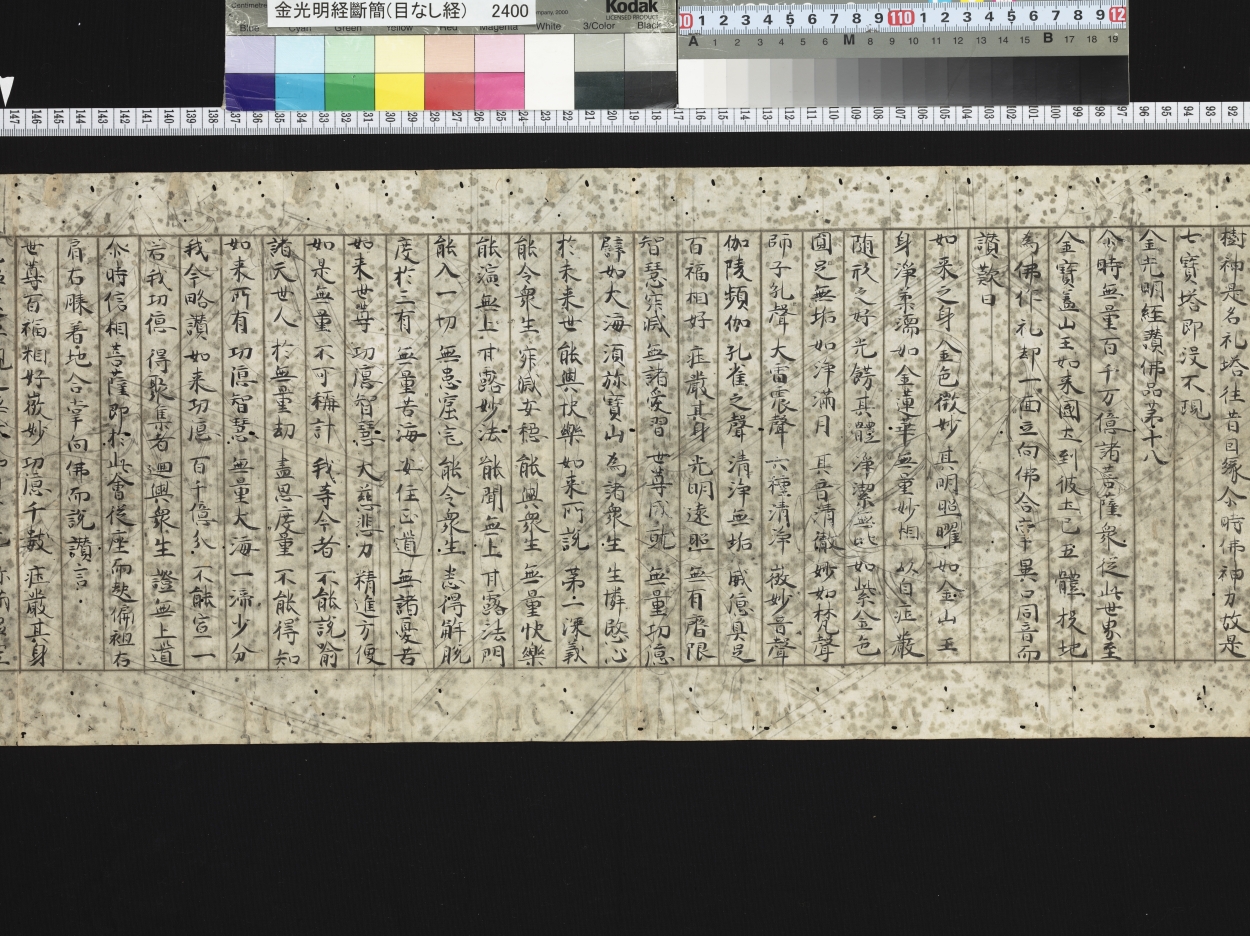 金光明経斷簡(目なし経) 2400
Kodak
LICENSED PRODUCT
Blue Cyan Green Yellow Red Magenta White 3/Color Black
樹神是名礼塔往昔因縁尒時佛神力故是
七寶塔即没不現
金光明經讃佛品第十八
尒時無量百千万億諸菩薩衆従此世界至
金寶盖山王如来國土到彼土已五體投地
為佛作礼却一面立向佛合掌異口同音而
讃歎曰
如来之身 金色微妙 其明照曜 如金山王
身淨柔濡 如金蓮華 無量妙相 以自荘嚴
随形之好 光餝其體 淨潔無比 如紫金色
圓足無垢 如淨滿月 其音清徹 妙如梵聲
師子吼聲 大雷震聲 六種清淨 微妙音聲
伽陵頻伽 孔雀之聲 清淨無垢 威徳具足
百福相好 荘嚴其身 光明遠照 無有齊限
智慧寂滅 無諸愛習 世尊成就 無量功徳
譬如大海 須弥寶山 為諸衆生 生憐愍心
於未来世 能與快樂 如来所説 第一深義
能令衆生 寂滅安穏 能與衆生 無量快樂
能演無上 甘露妙法 能開無上 甘露法門
能入一切 無患窟宅 能令衆生 悉得解脱
度於三有 無量苦海 安住正道 無諸憂苦
如来世尊 功徳智慧 大慈悲力 精進方便
如是無量 不可稱計 我等今者 不能説喻
諸天世人 於無量劫 盡思度量 不能得知
如来所有 功徳智慧 無量大海 一渧少分
我今略讃 如来功徳 百千億分 不能宣一
若我功徳 得聚集者 迴與衆生 證無上道
尒時信相菩薩即於此會従座而起偏袒右
肩右膝着地合掌向佛而説讃言
世尊百福 相好微妙 功徳千數 荘嚴其身